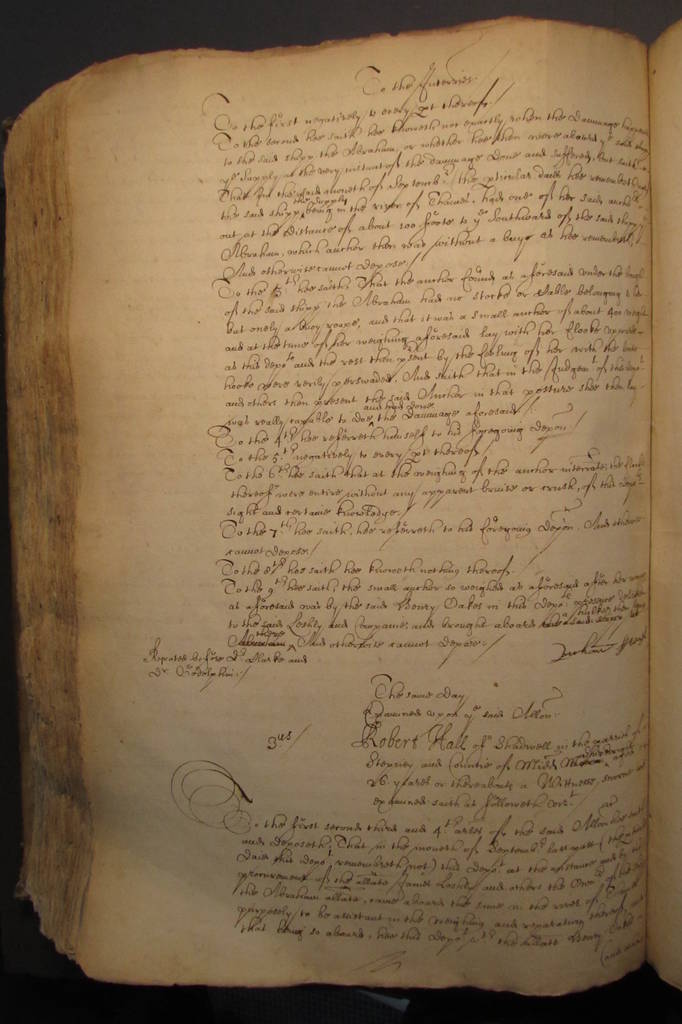 To the Interries:
To the first negatively to every pt thereof./
To the second hee saith hee knoweth not exactly when the Dammage happened
to the said shipp the Abraham, or whether hee then were aboard ye said shipp
ye Supply at the very instant of the dammage done and suffered, But saith
That in the said moneth of Septemb: the pticular daie hee remembreth not
the said shipp the Supply being in the river of Thames, had one of her said anchors
out at the distance of about 100 foote to ye Southward of the said shipp ye
Abraham, which anchor then was without a buoy as hee remembreth,
And otherwise cannot depose./
To the 3d hee saith, That the anchor found as aforesaid under the
of the said shipp the Abraham had no stocke or Cable belonging to her
but onely a buoy roape, and that it was a small anchor of about 400 weight
and at the time of her weighing aforesaid lay with her flooke upwards
as this depot and the rest then psent by the feeling of her with the boate
hooke were verily perswaded. And saith that in the Judgemt of this depot
and others then present the said Anchor in that posture shee then lay
was really capable to doe and had done the Dammage aforesaid./
To the 4th hee referreth himself to his foregoing depon./
To the 5th negatively to every pt thereof
To the 6th hee saith that at the weighing of the anchor interrate, the
thereof were entire without any apparent bruise or crack, of this depots
sight and certaine knowledge./
To the 7th hee saith, hee referreth to his foregoing Depon. And otherwise
cannot depose./
To the 8th hee saith hee knoweth nothing thereof.
To the 9th hee saith, the small anchor so weighed as aforesaid after her
as aforesaid was by the said Henry Oakes in this depots presence delivered
to the said Loshly and Company and brought aboard
there And otherwise cannot depose./
Repeated before Dr Clarke and
Dr Godolphin./
The same day
Examined upon ye said Allon.
3us/
Robert Hall of Shadwell in the parish of
Stepney and Countie of Midd aged
26 yeares or thereabouts a Wittnesse sworne and
examined saith as followeth vizt.
To the first second third and 4th arles of the said Allon hee saith
and deposeth, That in the moneth of Septembr last past (the
daie this depot remembreth not) this depot at the instance and by the
procurement of the allate James Loshly and others the Owners of
the Abraham allate, came aboard the same in the river of Thames
purposely to be assistant in the weighing and repairating thereof, and
that being so aboard, hee this depot wth the allate Henry Oakes